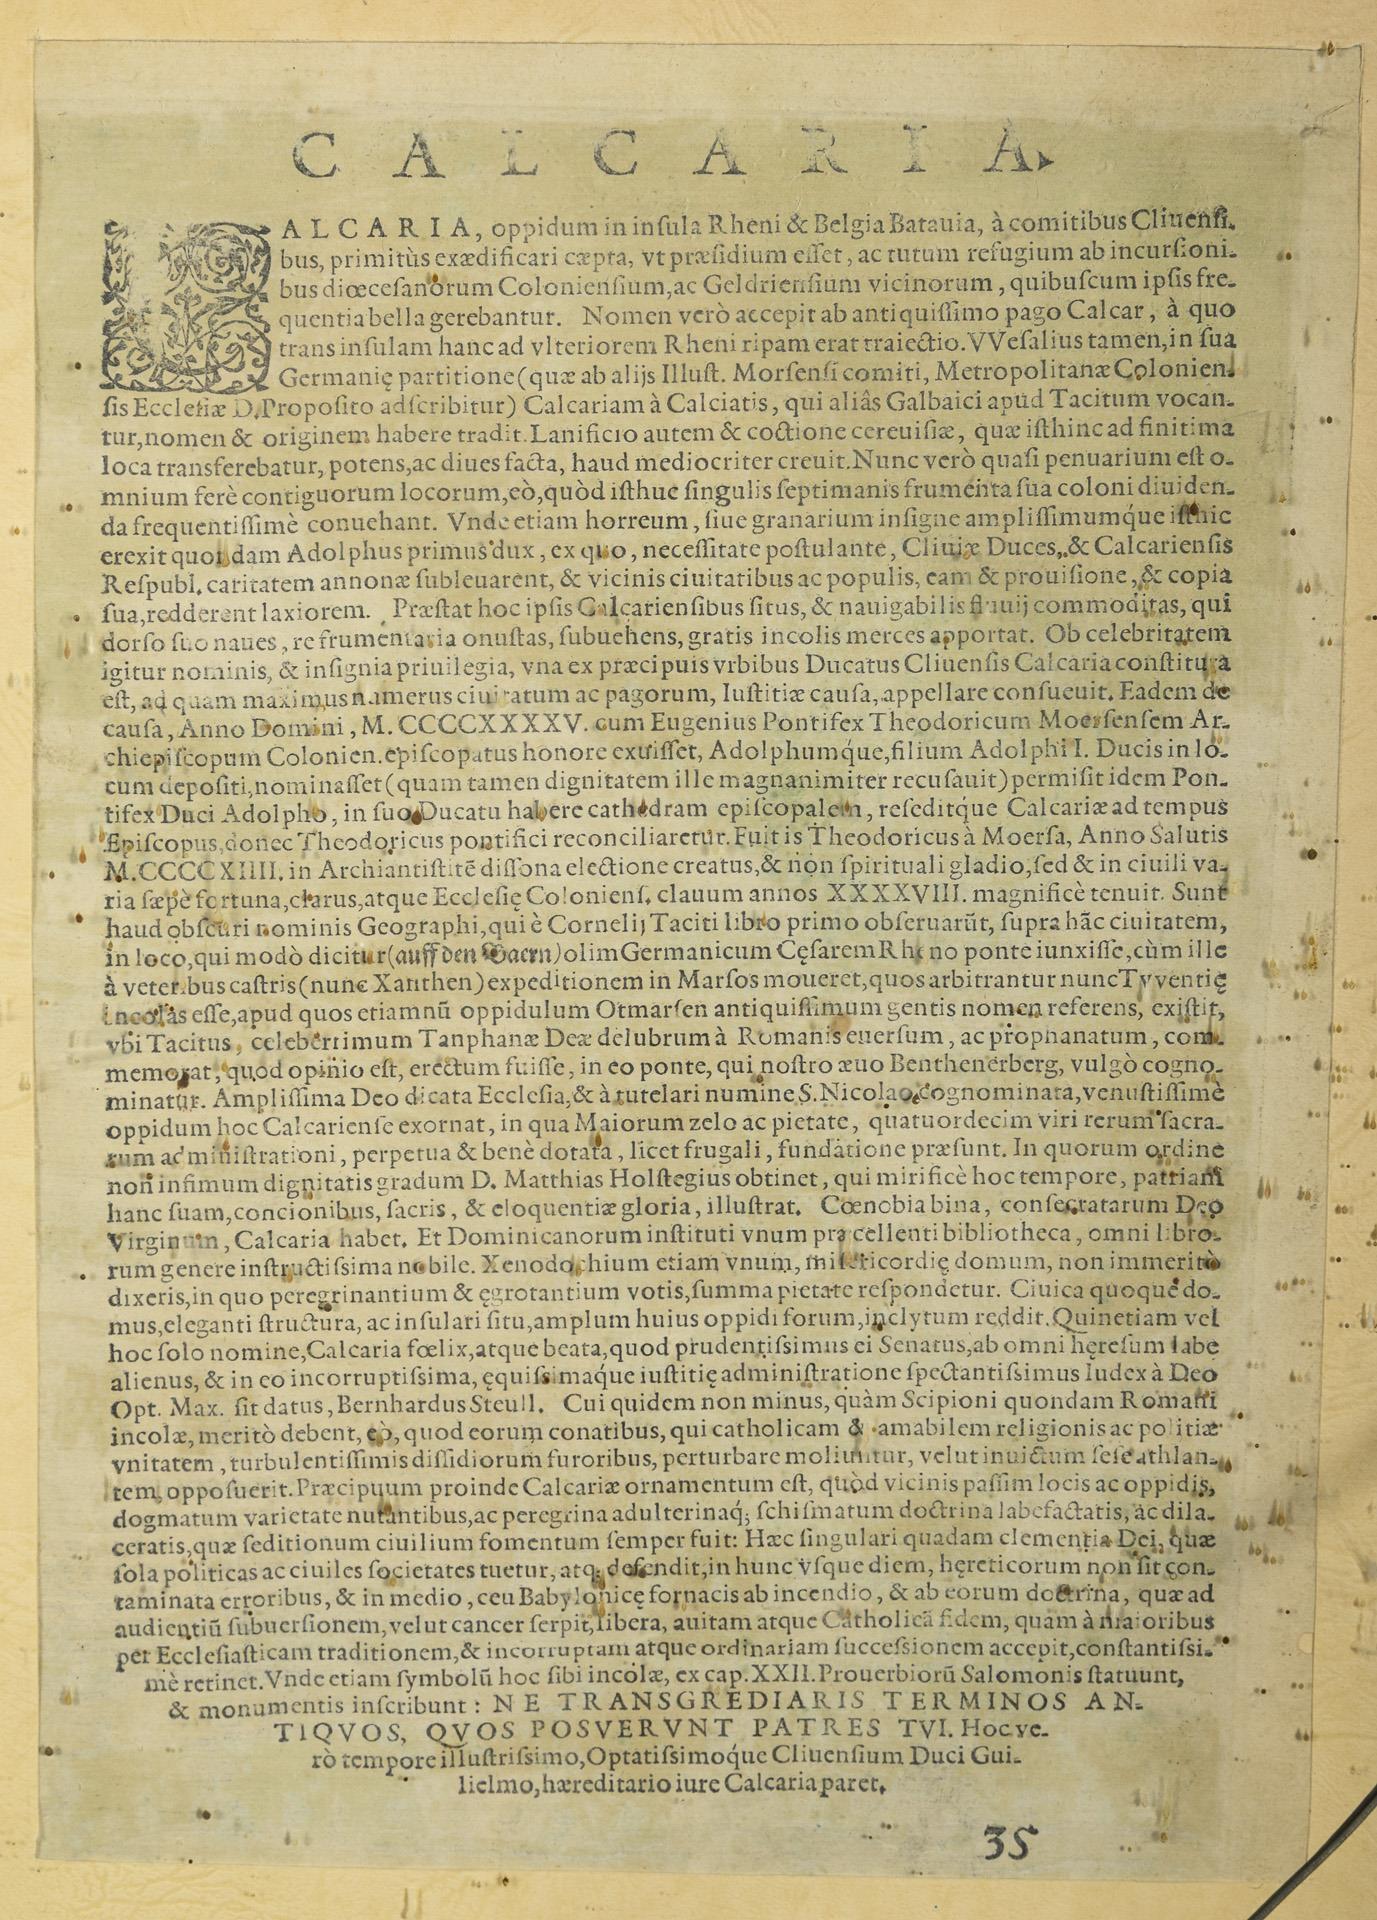 CALCARIA.
CALCARIA, oppidum in inſula Rheni & Belgia Batauia, à comitibus Cliuenſi-
bus, primitùs exædificari cæpta, vt præſidium eſſet, ac tutum refugium ab incurſioni-
bus diœceſanorum Colonienſium, ac Geldrienſium vicinorum, quibuſcum ipſis fre-
quentia bella gerebantur. Nomen verò accepit ab antiquiſſimo pago Calcar, à quo
trans inſulam hanc ad vlteriorem Rheni ripam erat traiectio. VVeſalius tamen, in ſua
Germanię partitione (quæ ab alijs Illuſt. Morſenſi comiti, Metropolitanæ Colonien-
ſis Eccleſiæ D. Propoſito adſcribitur) Calcariam à Calciatis, qui aliâs Galbaici apud Tacitum vocan-
tur, nomen & originem habere tradit. Lanificio autem & coctione cereuiſiæ, quæ iſthinc ad finitima
loca transferebatur, potens, ac diues facta, haud mediocriter creuit. Nunc verò quaſi penuarium eſt o-
mnium ferè contiguorum locorum, eò, quòd iſthuc ſingulis ſeptimanis frumenta ſua coloni diuiden-
da frequentiſſimè conuehant. Vnde etiam horreum, ſiue granarium inſigne ampliſſimumq́ue iſthic
erexit quondam Adolphus primus dux, ex quo, neceſſitate poſtulante, Cliuiæ Duces, & Calcarienſis
Reſpubl. caritatem annonæ ſubleuarent, & vicinis ciuitatibus ac populis, eam & prouiſione, & copia
ſua, redderent laxiorem. Præſtat hoc ipſis Calcarienſibus ſitus, & nauigabilis fluuij commoditas, qui
dorſo ſuo naues, re frumentaria onuſtas, ſubuehens, gratis incolis merces apportat. Ob celebritatem
igitur nominis, & inſignia priuilegia, vna ex præcipuis vrbibus Ducatus Cliuenſis Calcaria conſtituta
eſt, ad quam maximus numerus ciuitatum ac pagorum, Iuſtitiæ cauſa, appellare conſueuit. Eadem de
cauſa, Anno Domini, M. CCCCXXXXV. cum Eugenius Pontifex Theodoricum Moerſenſem Ar-
chiepiſcopum Colonien. epiſcopatus honore exuiſſet, Adolphumq́ue, filium Adolphi I. Ducis in lo-
cum depoſiti, nominaſſet (quam tamen dignitatem ille magnanimiter recuſauit) permiſit idem Pon-
tifex Duci Adolpho, in ſuo Ducatu habere cathedram epiſcopalem, reſeditq́ue Calcariæ ad tempus
Epiſcopus, donec Theodoricus pontifici reconciliaretur. Fuit is Theodoricus à Moerſa, Anno Salutis
M.CCCCXIIII. in Archiantiſtitē diſſona electione creatus, & non ſpirituali gladio, ſed & in ciuili va-
ria ſæpè fortuna, clarus, atque Eccleſię Colonienſ. clauum annos XXXXVIII. magnificè tenuit. Sunt
haud obſcuri nominis Geographi, qui è Cornelij Taciti libro primo obſeruarūt, ſupra hāc ciuitatem,
in loco, qui modò dicitur (auff den Baern) olim Germanicum Cęſarem Rheno ponte iunxiſſe, cùm ille
à veteribus caſtris (nunc Xanthen) expeditionem in Marſos moueret, quos arbitrantur nunc Tvventię
incolas eſſe, apud quos etiamnū oppidulum Otmarſen antiquiſſimum gentis nomen referens, exiſtit,
vbi Tacitus, celeberrimum Tanphanæ Deæ delubrum à Romanis euerſum, ac prophanatum, com-
memorat, quod opinio eſt, erectum fuiſſe, in eo ponte, qui noſtro æuo Benthenerberg, vulgò cogno-
minatur. Ampliſſima Deo dicata Eccleſia, & à tutelari numine S. Nicolao cognominata, venuſtiſſimè
oppidum hoc Calcarienſe exornat, in qua Maiorum zelo ac pietate, quatuordecim viri rerum ſacra-
rum adminiſtrationi, perpetua & benè dotata, licet frugali, fundatione præſunt. In quorum ordine
non infimum dignitatis gradum D. Matthias Holſtegius obtinet, qui mirificè hoc tempore, patriam
hanc ſuam, concionibus, ſacris, & eloquentiæ gloria, illuſtrat. Cœnobia bina, conſecratarum Deo
Virginum, Calcaria habet. Et Dominicanorum inſtituti vnum præcellenti bibliotheca, omni libro-
rum genere inſtructiſsima nobile. Xenodochium etiam vnum, miſericordię domum, non immeritò
dixeris, in quo peregrinantium & ęgrotantium votis, ſumma pietate reſpondetur. Ciuica quoque do-
mus, eleganti ſtructura, ac inſulari ſitu, amplum huius oppidi forum, inclytum reddit. Quinetiam vel
hoc ſolo nomine, Calcaria fœlix, atque beata, quod prudentiſsimus ei Senatus, ab omni hęreſum labe
alienus, & in eo incorruptiſsima, ęquiſsimaq́ue iuſtitię adminiſtratione ſpectantiſsimus Iudex à Deo
Opt. Max. ſit datus, Bernhardus Steull. Cui quidem non minus, quàm Scipioni quondam Romani
incolæ, meritò debent, eò, quod eorum conatibus, qui catholicam & amabilem religionis ac politiæ
vnitatem, turbulentiſſimis diſſidiorum furoribus, perturbare moliuntur, velut inuictum ſeſe athlan-
tem, oppoſuerit. Præcipuum proinde Calcariæ ornamentum eſt, quòd vicinis paſſim locis ac oppidis,
dogmatum varietate nutantibus, ac peregrina adulterinaq́; ſchiſmatum doctrina labefactatis, ac dila-
ceratis, quæ ſeditionum ciuilium fomentum ſemper fuit: Hæc ſingulari quadam clementia Dei, quæ
ſola politicas ac ciuiles ſocietates tuetur, atq; defendit, in hunc vſque diem, hęreticorum non ſit con-
taminata erroribus, & in medio, ceu Babylonicę fornacis ab incendio, & ab eorum doctrina, quæ ad
audientiū ſubuerſionem, velut cancer ſerpit, libera, auitam atque Catholicā fidem, quam à maioribus
per Eccleſiaſticam traditionem, & incorruptam atque ordinariam ſucceſsionem accepit, conſtantiſsi-
mè retinet. Vnde etiam ſymbolū hoc ſibi incolæ, ex cap. XXII. Prouerbiorū Salomonis ſtatuunt,
& monumentis inſcribunt: NE TRANSGREDIARIS TERMINOS AN-
TIQVOS, QVOS POSVERVNT PATRES TVI. Hoc ve-
rò tempore illuſtriſsimo, Optatiſsimoq́ue Cliuenſium Duci Gui-
lielmo, hæreditario iure Calcaria paret.
35